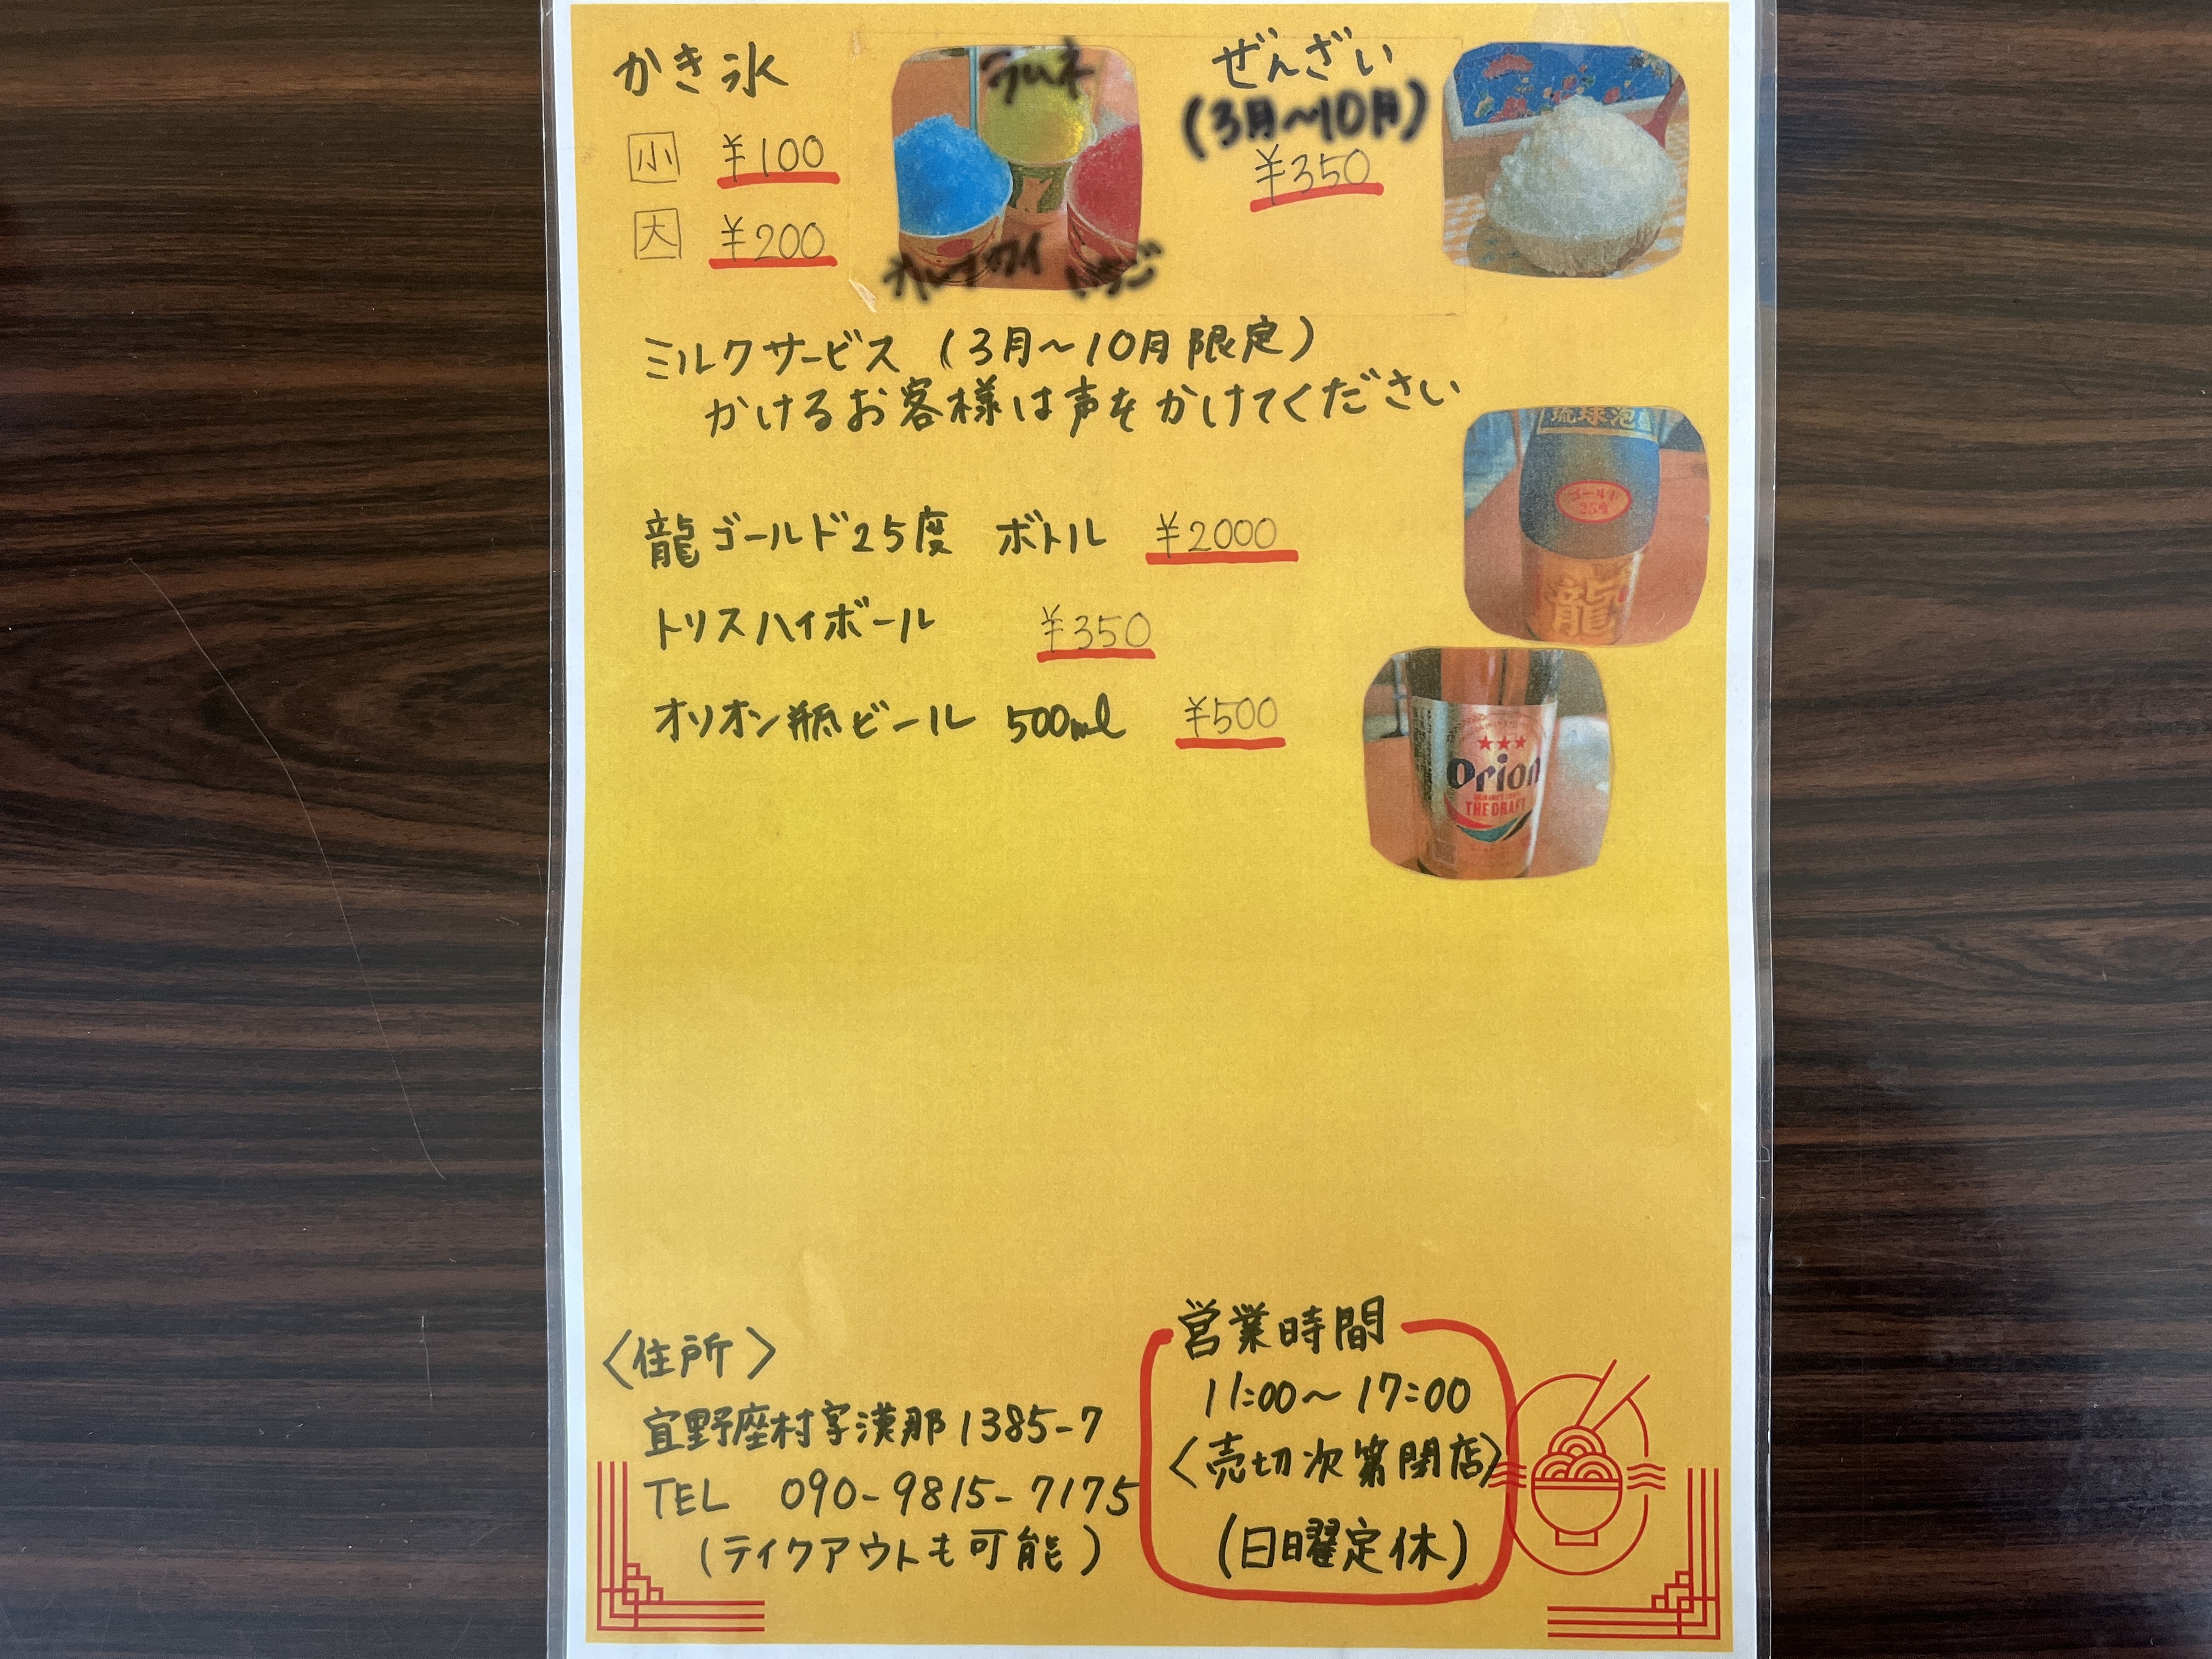 かき氷
小 ¥100
大 ¥200
ラムネ
いちご
ぜんざい
(3月〜10月)
¥350
ミルクサービス (3月〜10月限定)
かけるお客様は声をかけてください
龍ゴールド25度 ボトル ¥2000
琉球泡
ゴールド
25度
龍
トリスハイボール ¥350
オリオン瓶ビール 500ml ¥500
Orion
THE DRAFT
〈住所〉
宜野座村字漢那1385-7
TEL 090-9815-7175
(テイクアウトも可能)
営業時間
11:00〜17:00
〈売切次第閉店〉
(日曜定休)